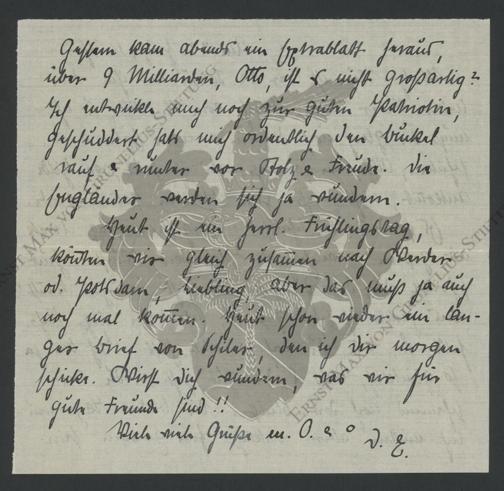 Gestern kam abends ein Extrablatt heraus,
über 9 Milliarden, Otto, ist es nicht großartig?
Ich entwickle mich noch zur guten Patriotin,
geschuddert hats mich ordentlich den Buckel
rauf & runter vor Stolz & Freude. Die
Engländer werden sich ja wundern.
Heut ist ein herrl. Frühlingstag,
könnten wir gleich zusammen nach Werder
od. Potsdam, Liebling, aber das muß ja auch
noch mal kommen. Heut schon wieder ein lan-
ger Brief von Schüler, den ich Dir morgen
schicke. Wirst Dich wundern, was wir für
gute Freunde sind!!
Viele viele Grüße m. O. & o D. E.
ERNST MAX VON GRUNELIUS-STIFTUNG
ERNST MAX VON GRUNELIUS-STIFTUNG